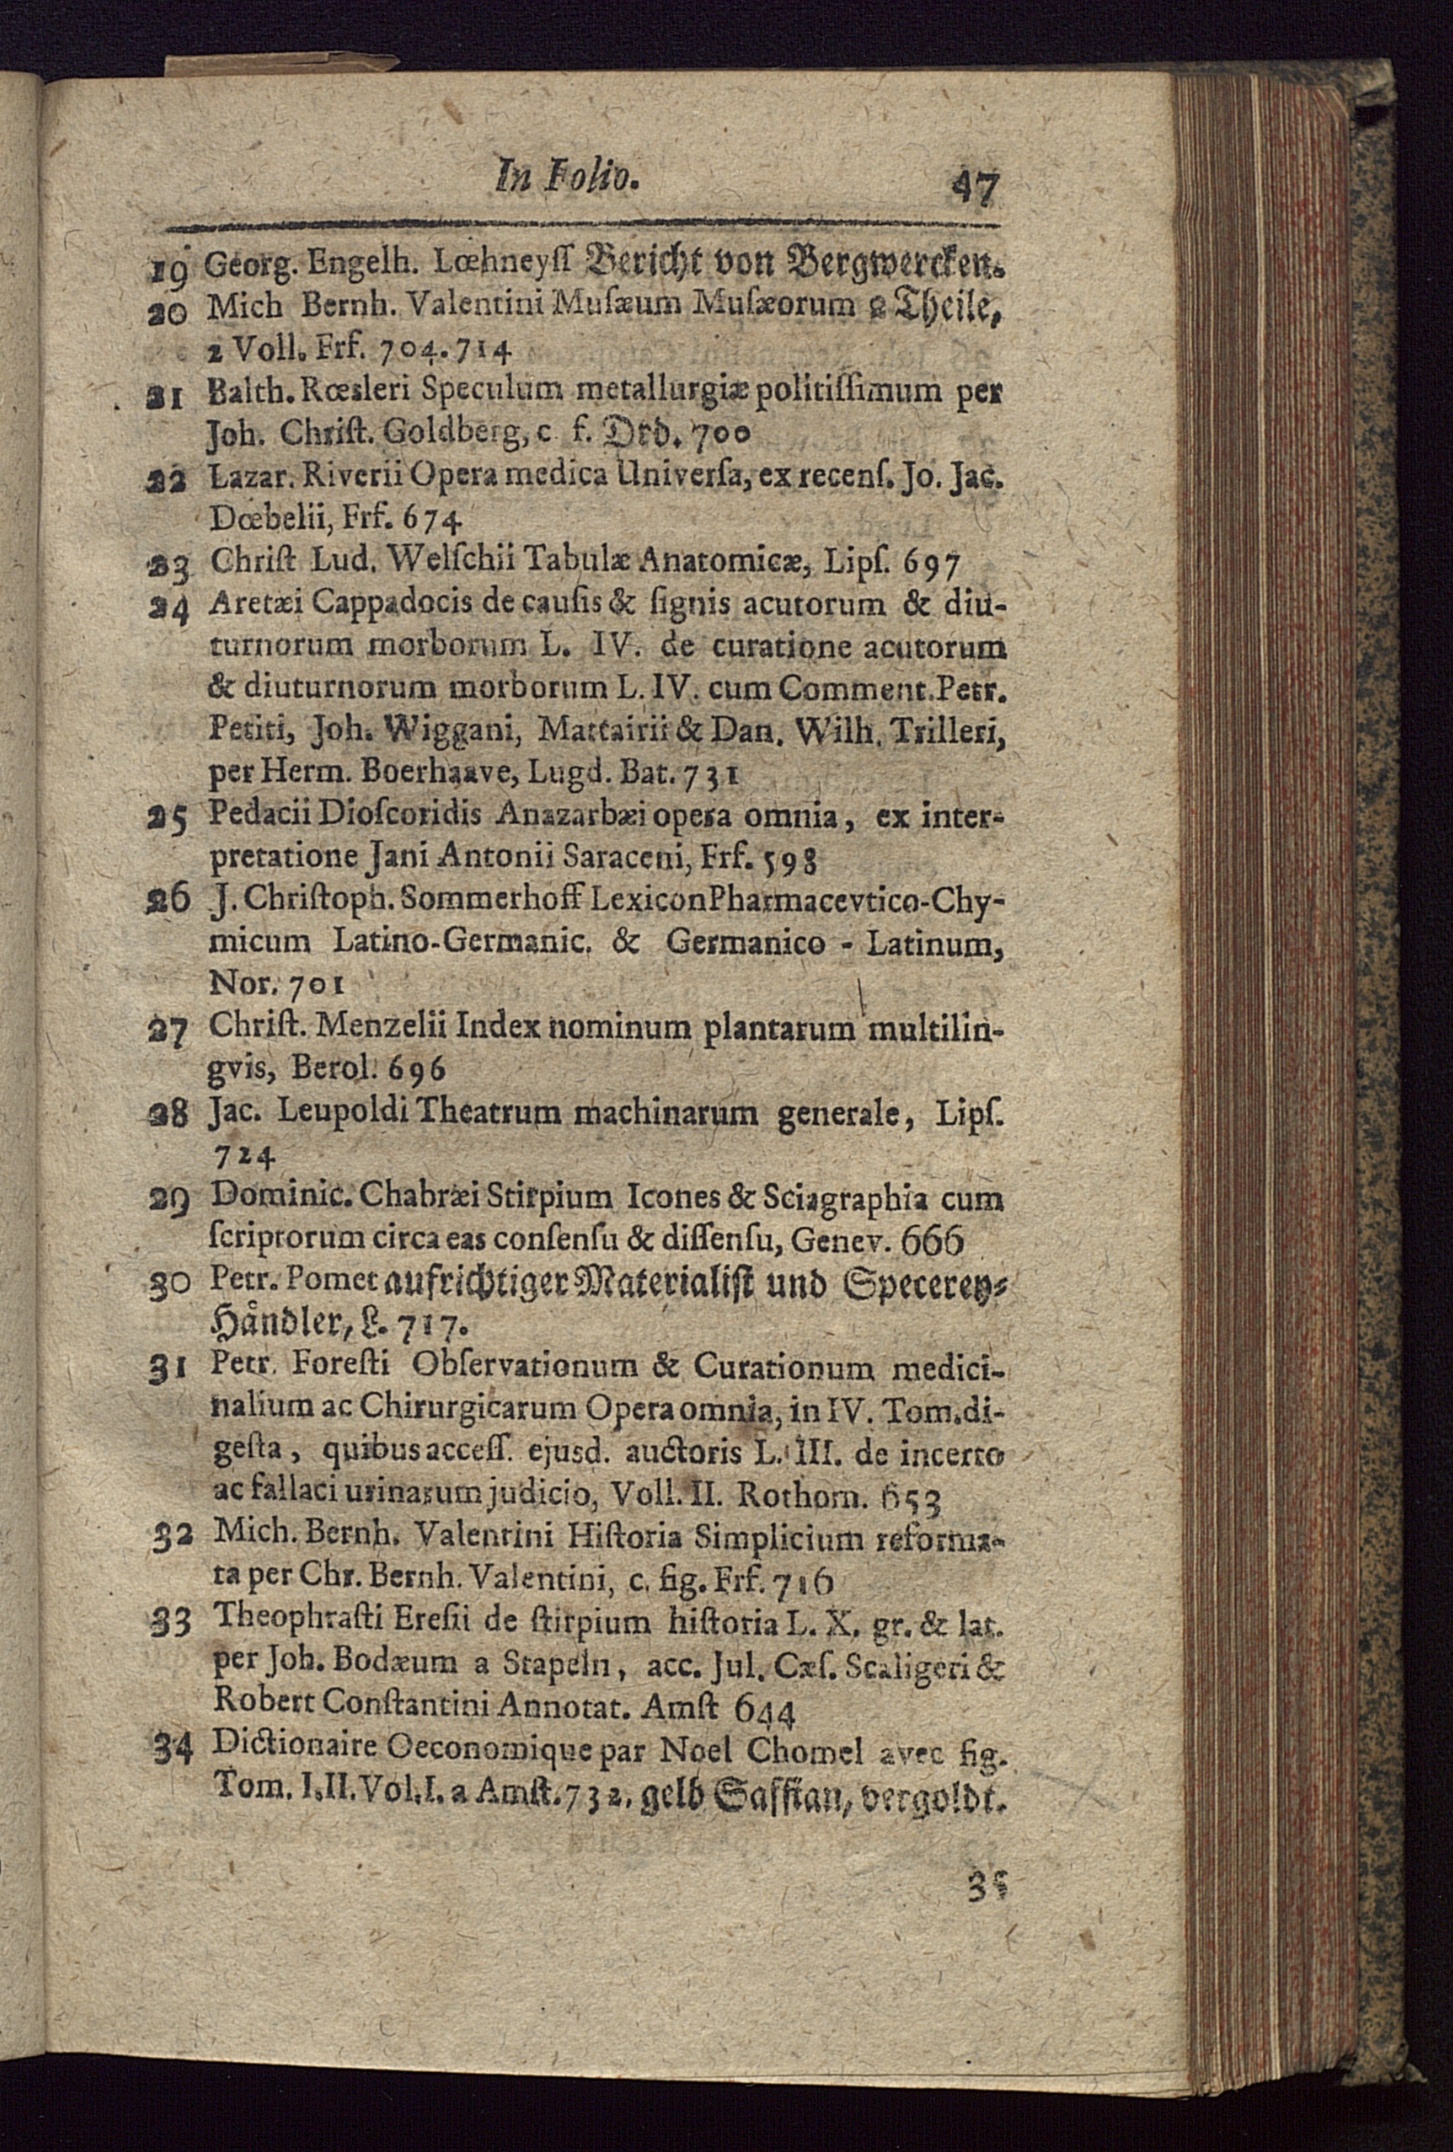 In Folio. 47
19 Georg. Engelh. Lœhneyſſ Bericht von Bergwercken.
20 Mich Bernh. Valentini Muſæum Muſæorum 2 Theile,
2 Voll. Frf. 704. 714
21 Balth. Rœsleri Speculum metallurgiæ politiſſimum per
Joh. Chriſt. Goldberg, c. f. Drd. 700
22 Lazar. Riverii Opera medica Univerſa, ex recenſ. Jo. Jac.
Dœbelii, Frf. 674
23 Chriſt Lud. Welſchii Tabulæ Anatomicæ, Lipſ. 697
24 Aretæi Cappadocis de cauſis & ſignis acutorum & diu-
turnorum morborum L. IV. de curatione acutorum
& diuturnorum morborum L. IV. cum Comment. Petr.
Petiti, Joh. Wiggani, Mattairii & Dan. Wilh. Trilleri,
per Herm. Boerhaave, Lugd. Bat. 731
25 Pedacii Dioſcoridis Anazarbæi opera omnia, ex inter-
pretatione Jani Antonii Saraceni, Frf. 598
26 J. Chriſtoph. Sommerhoff Lexicon Pharmacevtico-Chy-
micum Latino-Germanic. & Germanico - Latinum,
Nor. 701
27 Chriſt. Menzelii Index nominum plantarum multilin-
gvis, Berol. 696
28 Jac. Leupoldi Theatrum machinarum generale, Lipſ.
724
29 Dominic. Chabræi Stirpium Icones & Sciagraphia cum
ſcriptorum circa eas conſenſu & diſſenſu, Genev. 666
30 Petr. Pomet aufrichtiger Materialiſt und Specerey-
Håndler, L. 717.
31 Petr. Foreſti Obſervationum & Curationum medici-
nalium ac Chirurgicarum Opera omnia, in IV. Tom. di-
geſta, quibus acceſſ. ejusd. auctoris L. III. de incerto
ac fallaci urinarum judicio, Voll. II. Rothom. 653
32 Mich. Bernh. Valentini Hiſtoria Simplicium reforma-
ta per Chr. Bernh. Valentini, c. fig. Frf. 716
33 Theophraſti Ereſii de ſtirpium hiſtoria L. X. gr. & lat.
per Joh. Bodæum a Stapeln, acc. Jul. Cæſ. Scaligeri &
Robert Conſtantini Annotat. Amſt 644
34 Dictionaire Oeconomique par Noel Chomel avec fig.
Tom. I. II. Vol. I. a Amſt. 732. gelb Saffian, vergoldt.
35